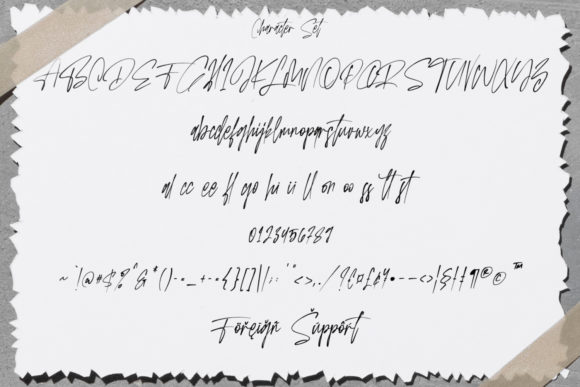 Character Set
ABCDEFGHIJKLMNOPQRSTUVWXYZ
abcdefghijklmnopqrstuvwxyz
al cc ee fl go hi ii ll on oo ss tt st
0123456789
~ `!@#$%^&*()-•_+-={}[]|\;:'"<>,./?€¤£¢¥•–—‹›¦§†‡¶®©™
Föřęiğñ Šüppôřt